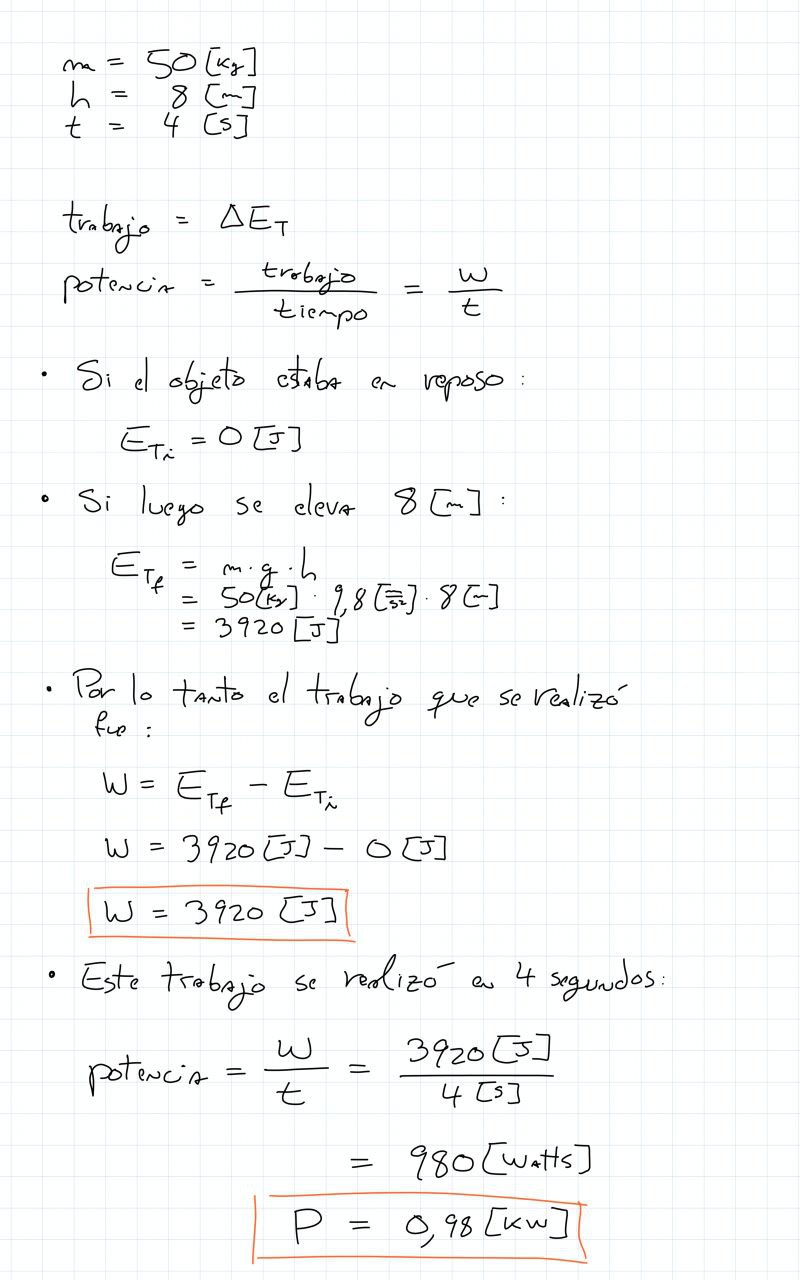 m = 50 [kg]
h = 8 [m]
t = 4 [s]
trabajo = ΔE_T
potencia = trabajo / tiempo = W / t
• Si el objeto estaba en reposo:
E_Ti = 0 [J]
• Si luego se eleva 8 [m]:
E_Tf = m·g·h
= 50[kg] · 9,8 [m/s2] · 8 [m]
= 3920 [J]
• Por lo tanto el trabajo que se realizó
fue:
W = E_Tf - E_Ti
W = 3920 [J] - 0 [J]
W = 3920 [J]
• Este trabajo se realizó en 4 segundos:
potencia = W / t = 3920 [J] / 4 [s]
= 980 [Watts]
P = 0,98 [KW]